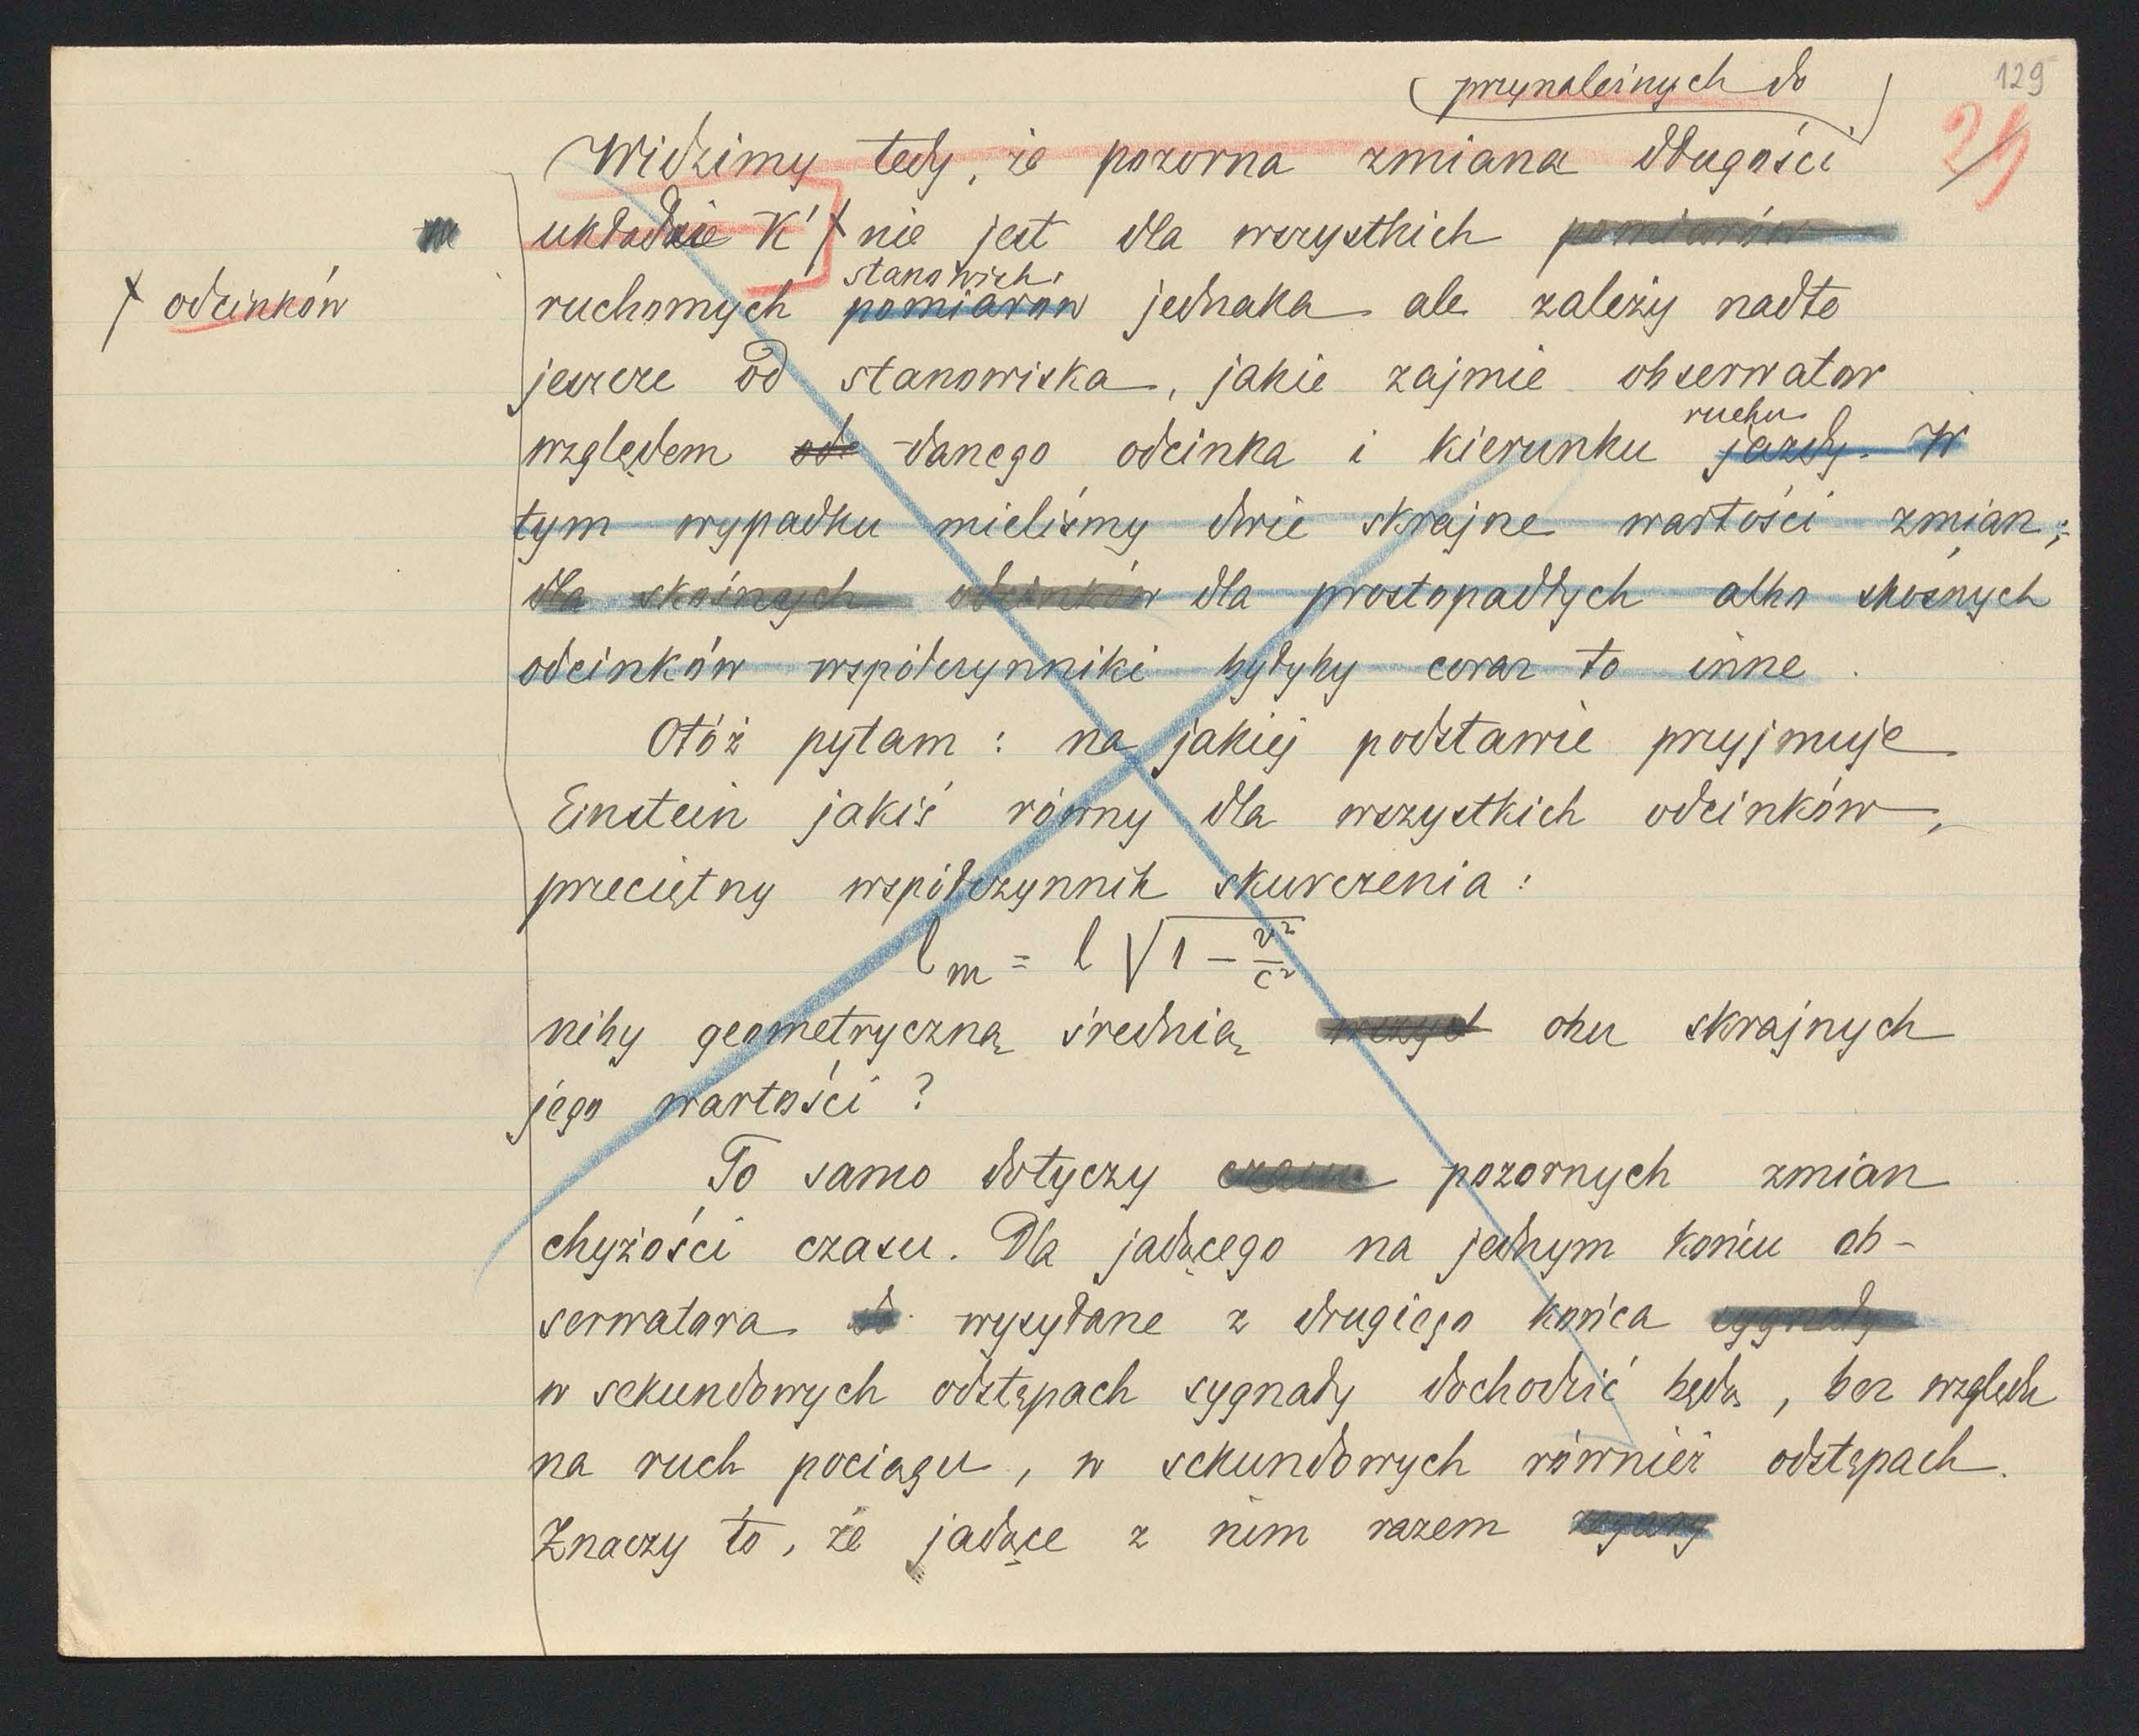 129
25
przynależnych do
Widzimy tedy, że pozorna zmiana długości
układzie K' nie jest dla wszystkich pomiarów
odcinków
stanowich
ruchomych pomiarow jednaka ale zależy nadto
jeszcze od stanowiska, jakie zajmie obserwator
ruchu
względem ode danego odcinka i kierunku jazdy. W
tym wypadku mieliśmy dwie skrajne wartości zmian;
dla skośnych odcinków dla prostopadłych albo skośnych
odcinków współczynniki byłyby coraz to inne.
Otóż pytam: na jakiej podstawie przyjmuje
Einstein jakiś równy dla wszystkich odcinków,
przeciętny współczynnik skurczenia:
l_m = l √1 - v²/c²
niby geometryczną średnią wszyst obu skrajnych
jego wartości?
To samo dotyczy czasu pozornych zmian
chyżości czasu. Dla jadącego na jednym końcu ob-
serwatora wysyłane z drugiego końca sygnały
w sekundowych odstępach sygnały dochodzić będą, bez względu
na ruch pociągu, w sekundowych również odstępach.
Znaczy to, że jadące z nim razem zegary